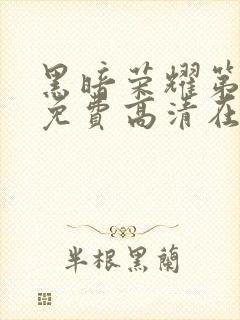 黑暗荣耀第
免費高清在
半根黑蘭